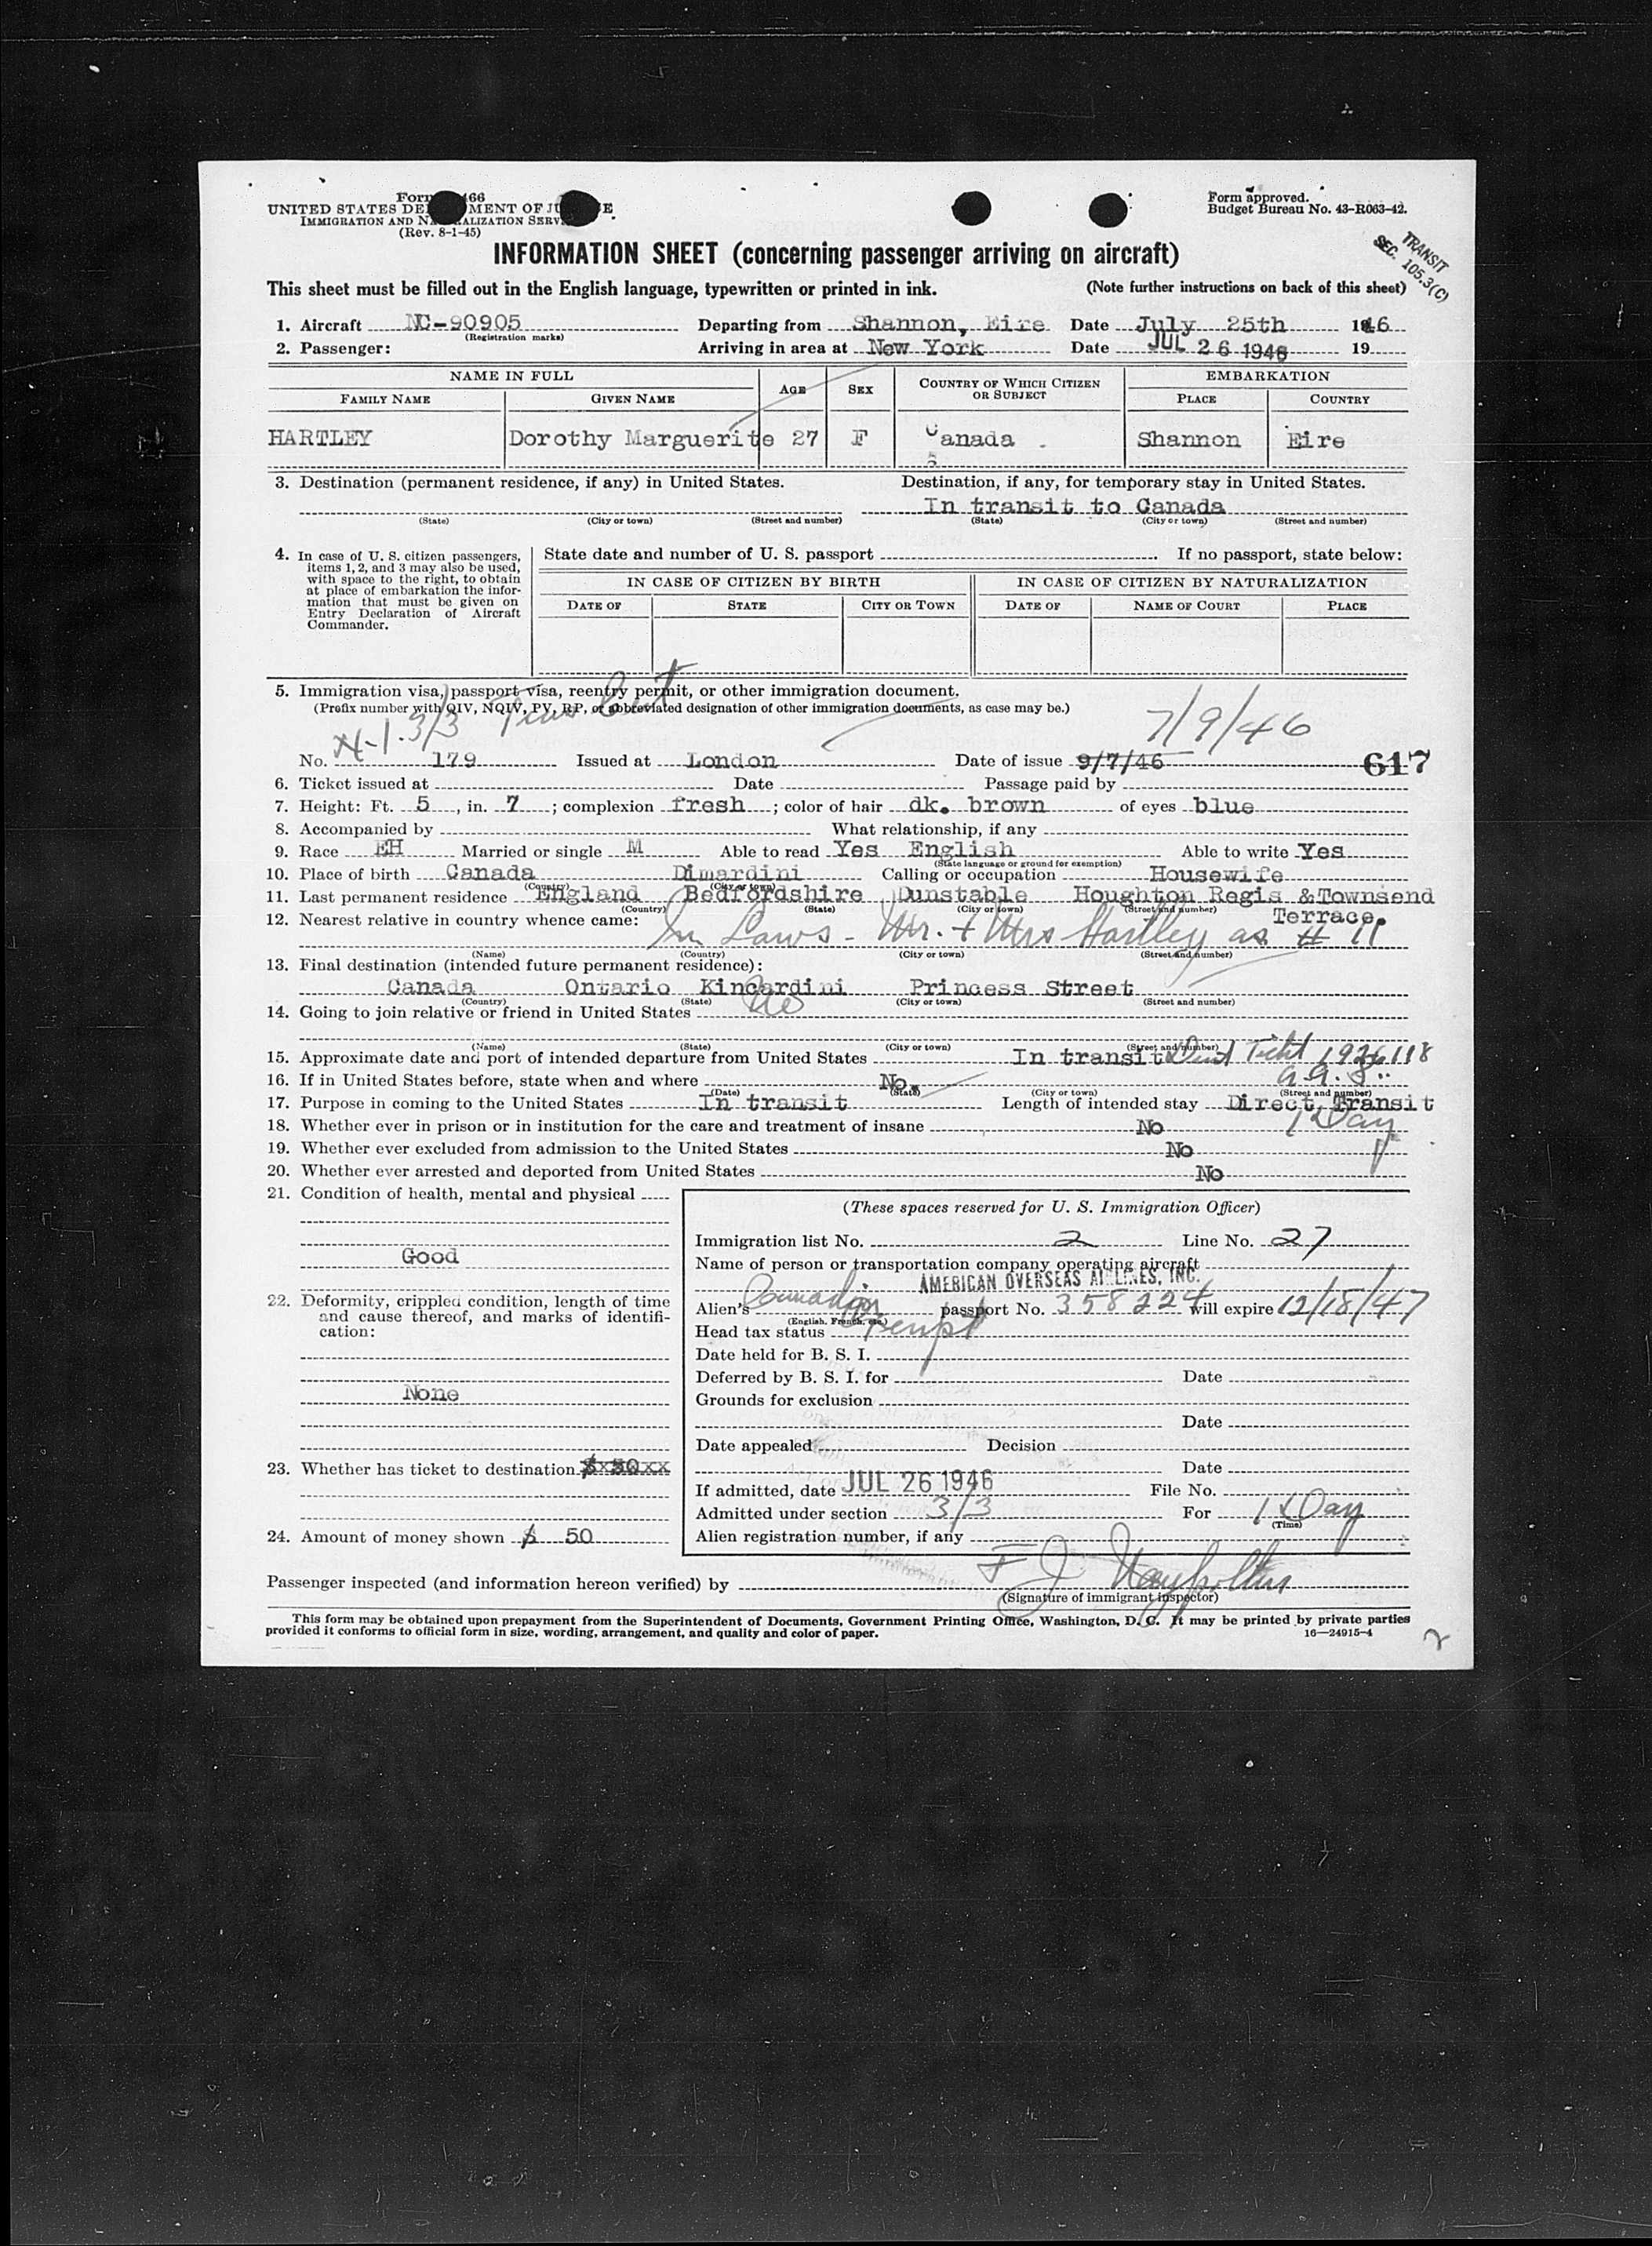 Form 466
UNITED STATES DEPARTMENT OF JUSTICE
IMMIGRATION AND NATURALIZATION SERVICE
(Rev. 8-1-45)
Form approved.
Budget Bureau No. 43-R063-42.
TRANSIT
SEC. 105.3(C)
INFORMATION SHEET (concerning passenger arriving on aircraft)
This sheet must be filled out in the English language, typewritten or printed in ink. (Note further instructions on back of this sheet)
1. Aircraft NC-90905 Departing from Shannon, Eire Date July 25th 1946
(Registration marks)
2. Passenger: Arriving in area at New York Date JUL 26 1946 19
NAME IN FULL AGE SEX COUNTRY OF WHICH CITIZEN OR SUBJECT EMBARKATION
FAMILY NAME GIVEN NAME PLACE COUNTRY
HARTLEY Dorothy Marguerite 27 F Canada Shannon Eire
3. Destination (permanent residence, if any) in United States. Destination, if any, for temporary stay in United States.
In transit to Canada
(State) (City or town) (Street and number) (State) (City or town) (Street and number)
4. In case of U. S. citizen passengers, items 1, 2, and 3 may also be used, with space to the right, to obtain at place of embarkation the information that must be given on Entry Declaration of Aircraft Commander.
State date and number of U. S. passport . If no passport, state below:
IN CASE OF CITIZEN BY BIRTH IN CASE OF CITIZEN BY NATURALIZATION
DATE OF STATE CITY OR TOWN DATE OF NAME OF COURT PLACE
5. Immigration visa, passport visa, reentry permit, or other immigration document.
(Prefix number with QIV, NQIV, PV, RP, or abbreviated designation of other immigration documents, as case may be.)
3/3 Trans Cert 7/9/46
No. 179 Issued at London Date of issue 9/7/46 617
6. Ticket issued at Date Passage paid by
7. Height: Ft. 5, in. 7; complexion fresh; color of hair dk. brown of eyes blue
8. Accompanied by What relationship, if any
9. Race EH Married or single M Able to read Yes English Able to write Yes
(State language or ground for exemption)
10. Place of birth Canada Dimardini Calling or occupation Housewife
(Country) (City or town)
11. Last permanent residence England Bedfordshire Dunstable Houghton Regis &Townsend
(Country) (State) (City or town) (Street and number) Terrace.
12. Nearest relative in country whence came:
In Laws - Mr. + Mrs Hartley as # 11
(Name) (Country) (City or town) (Street and number)
13. Final destination (intended future permanent residence):
Canada Ontario Kincardini Princess Street
(Country) (State) (City or town) (Street and number)
14. Going to join relative or friend in United States No
(Name) (State) (City or town) (Street and number)
15. Approximate date and port of intended departure from United States In transit
16. If in United States before, state when and where No.
(Date) (State) (City or town) (Street and number)
17. Purpose in coming to the United States In transit Length of intended stay Direct Transit
1 Day
18. Whether ever in prison or in institution for the care and treatment of insane No
19. Whether ever excluded from admission to the United States No
20. Whether ever arrested and deported from United States No
21. Condition of health, mental and physical
Good
22. Deformity, crippled condition, length of time and cause thereof, and marks of identification:
None
23. Whether has ticket to destination $x50xx
24. Amount of money shown $ 50
(These spaces reserved for U. S. Immigration Officer)
Immigration list No. 2 Line No. 27
Name of person or transportation company operating aircraft
AMERICAN OVERSEAS AIRLINES, INC.
Alien's Canadian passport No. 358224 will expire 12/18/47
(English, French, etc.)
Head tax status Exempt
Date held for B. S. I.
Deferred by B. S. I. for Date
Grounds for exclusion
Date
Date appealed Decision
Date
If admitted, date JUL 26 1946 File No.
Admitted under section 3/3 For 1 Day
(Time)
Alien registration number, if any
Passenger inspected (and information hereon verified) by
(Signature of immigrant inspector)
This form may be obtained upon prepayment from the Superintendent of Documents, Government Printing Office, Washington, D. C. It may be printed by private parties
provided it conforms to official form in size, wording, arrangement, and quality and color of paper. 16—24915-4
2